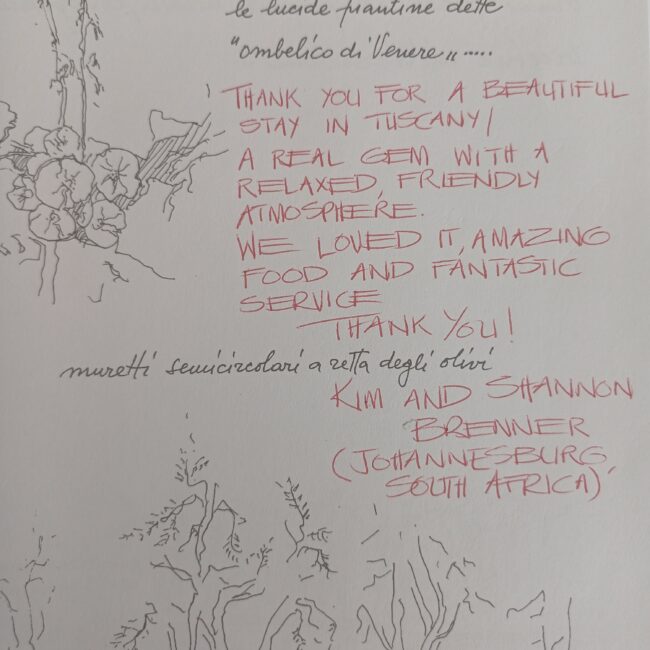 le lucide piantine dette
"ombelico di Venere" .....
THANK YOU FOR A BEAUTIFUL
STAY IN TUSCANY/
A REAL GEM WITH A
RELAXED, FRIENDLY
ATMOSPHERE.
WE LOVED IT, AMAZING
FOOD AND FANTASTIC
SERVICE
THANK YOU!
muretti semicircolari a retta degli olivi
KIM AND SHANNON
BRENNER
(JOHANNESBURG,
SOUTH AFRICA)